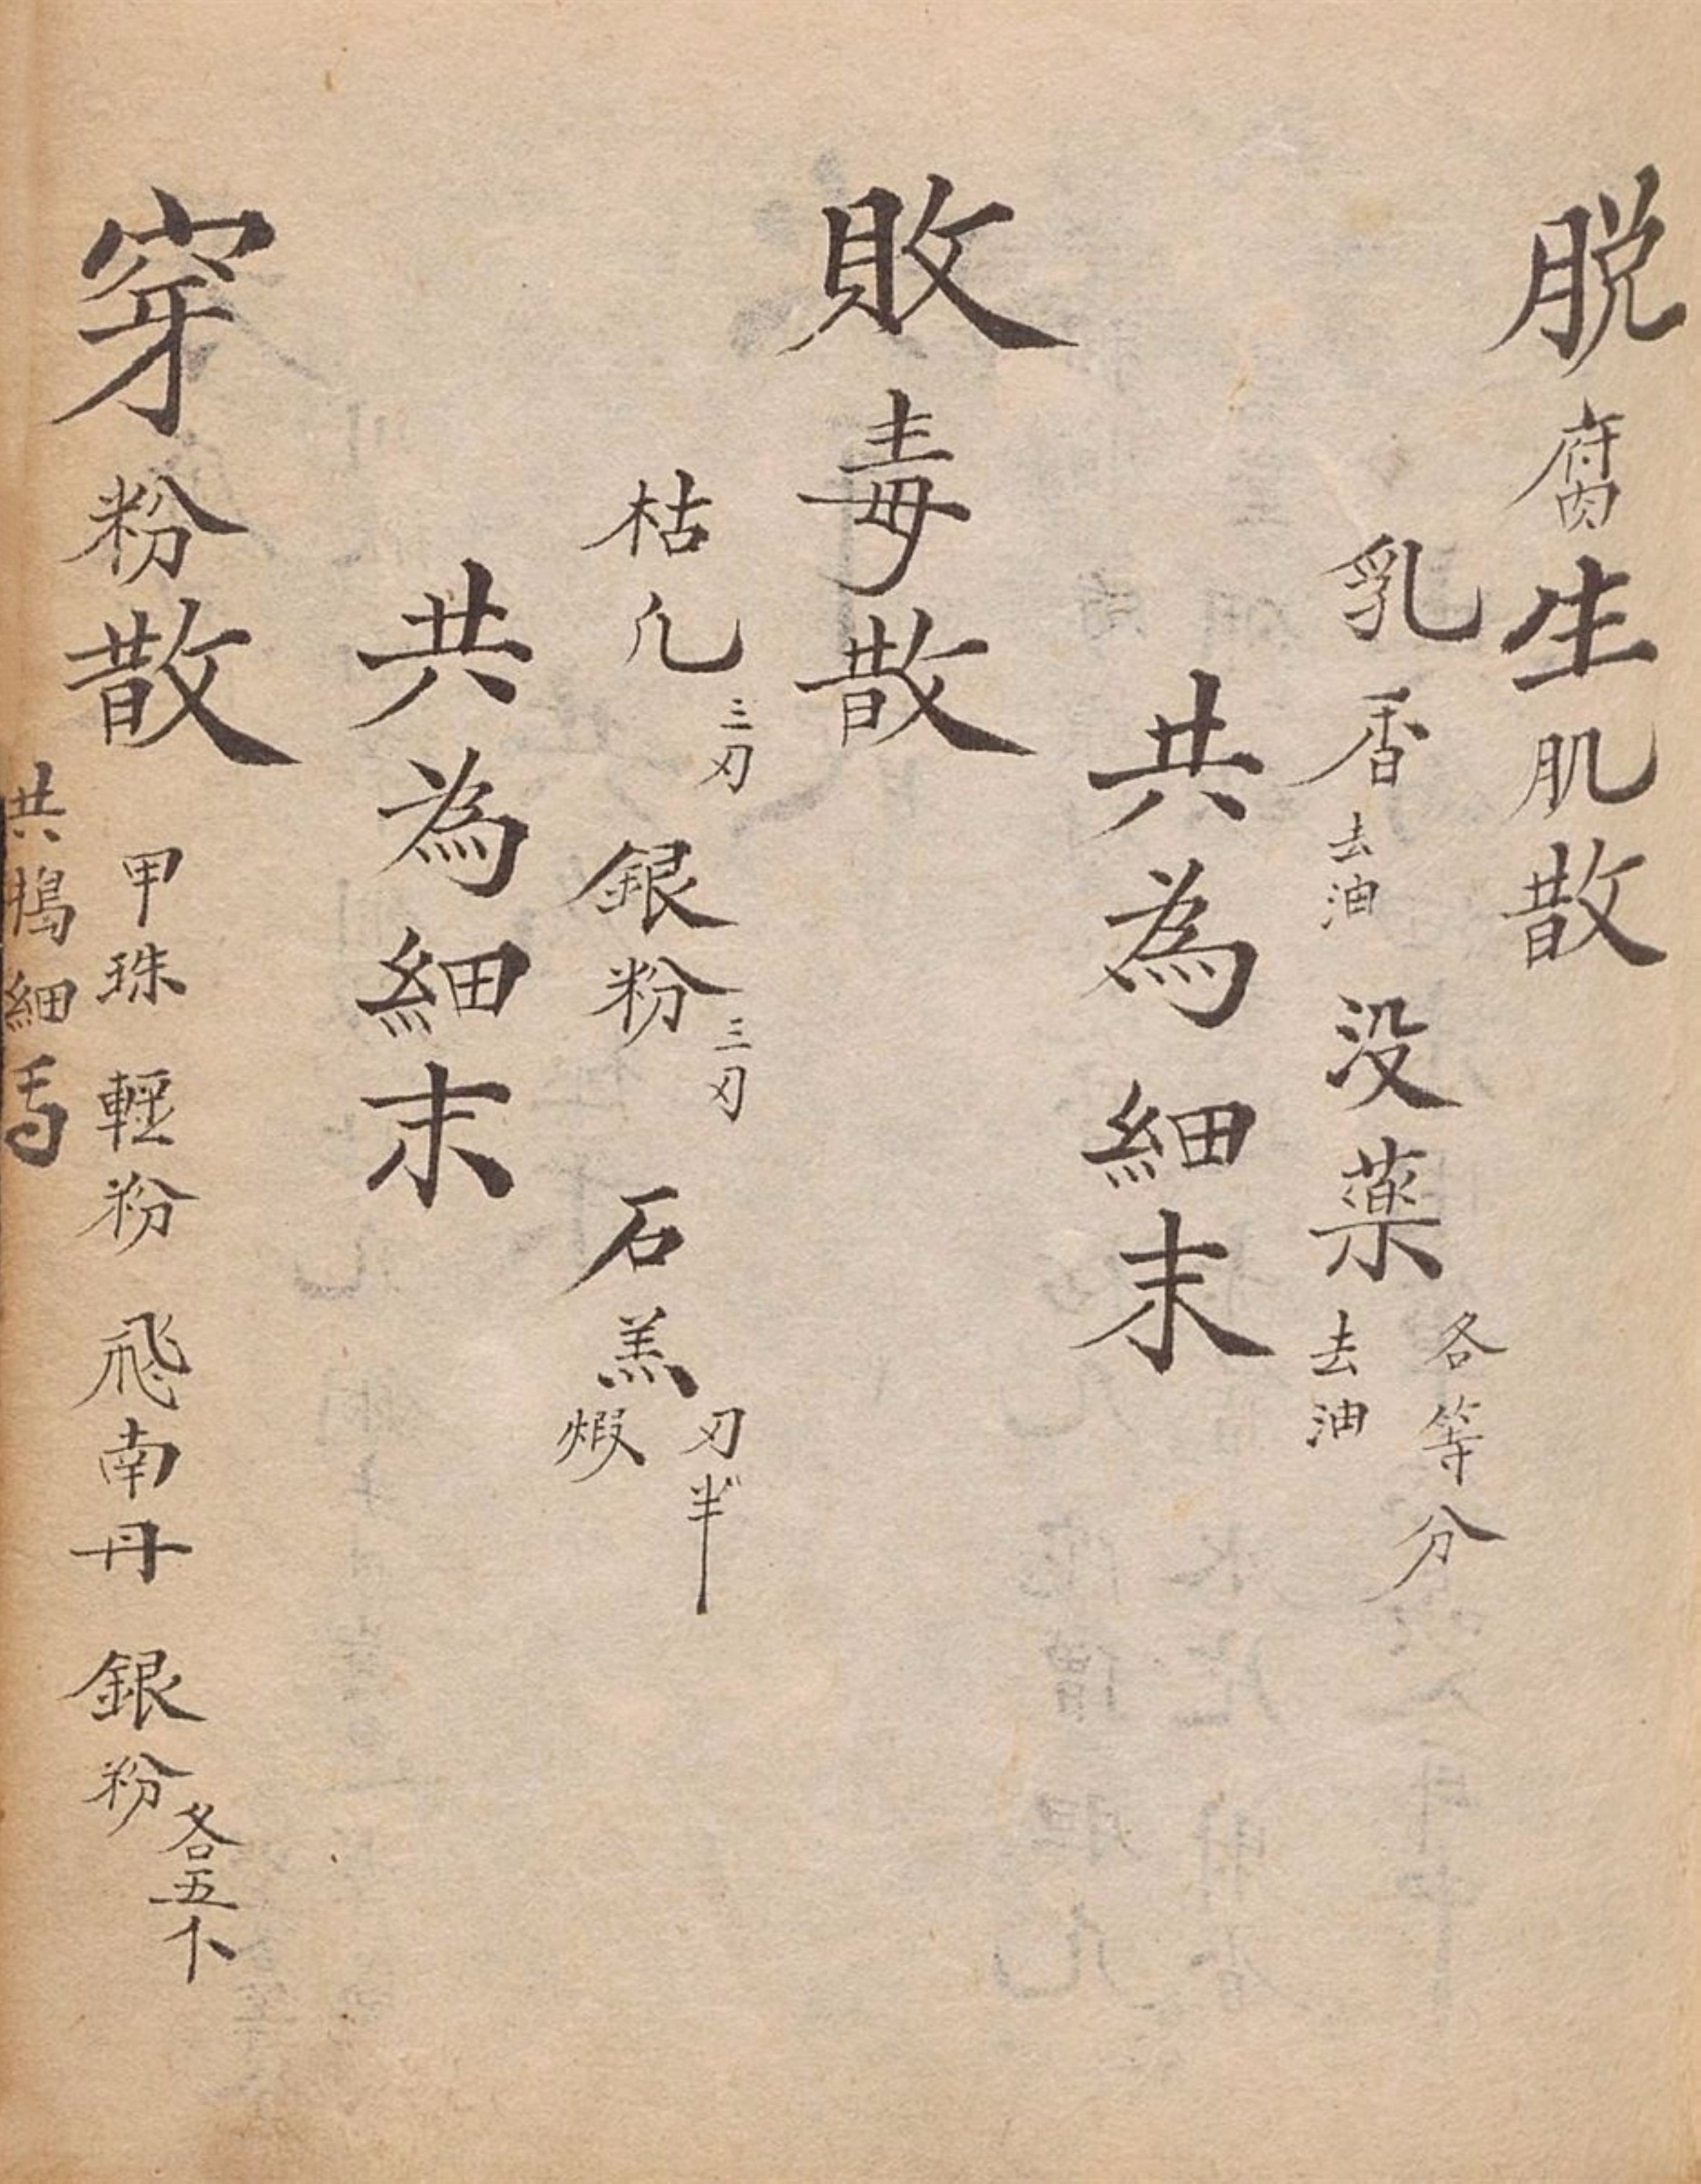 脱腐生肌散
乳香去油 没薬去油 各等分
共為細末
敗毒散
枯凢三刃 銀粉三刃 石羔煆 刃半
共為細末
穿粉散
甲珠 輕粉 飛南丹 銀粉各五卜
共搗細